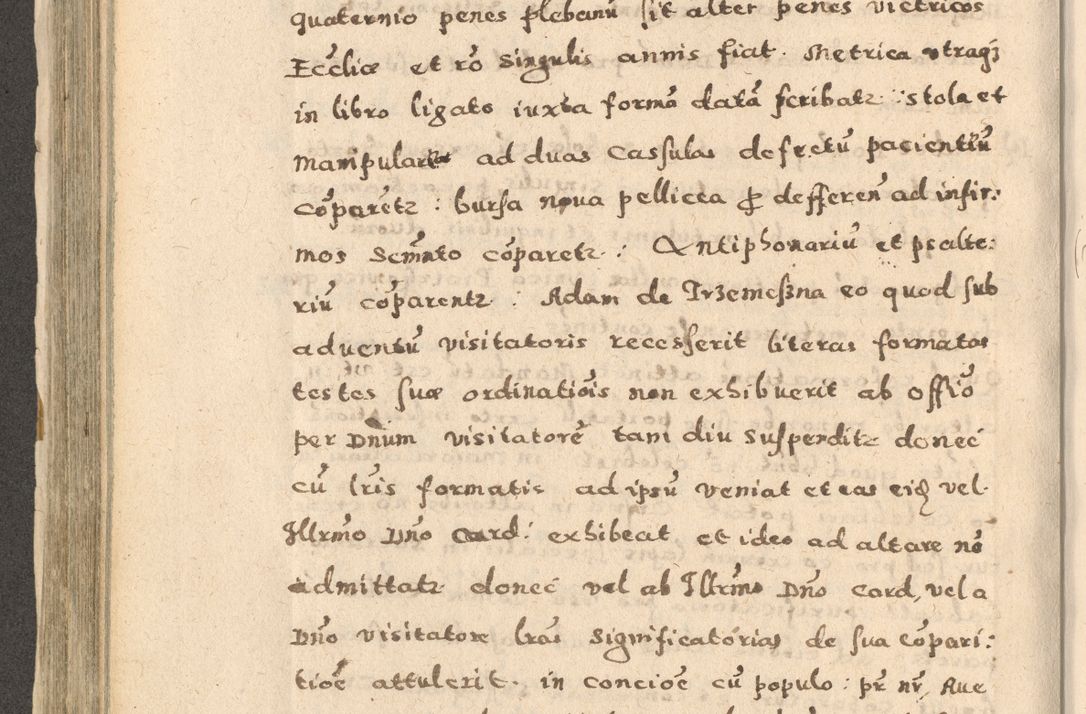 quaternio penes plebanū sit alter penes victricos
Ecc̄liæ et rō singulis annis fiat. Metrica utraqʒ
in libro ligato iuxta formā datā scribatz. Stola et
Manipulares ad duas Cassulas defectū pacientiū
cōparetz: bursa nova pellicea ꝓ defferen̄ ad infir:
mos Scm̄nto cōparetz.: Antiphonariū et psalte:
riū cōparentz: Adam de Trzemeszna eo quod sub
aduentū visitatoris recesserit literas formatas
testes suæ ordinatiōis non exhibuerit ab offiō
per Dn̄um visitatorē tam diu suspenditz donec
cū lr̄is formatis ad ipsū veniat et eas eidꝫ vel
Illrm̄o Dn̄o Card: exhibeat et ideo ad altare nō
admittatz donec vel ab Illrm̄o Dn̄o Card, vel a
Dn̄o visitatore lr̄as significatorias de sua cōpari:
tiōe attulerit. in concioē cū populo: pr̄ nr̄, Ave